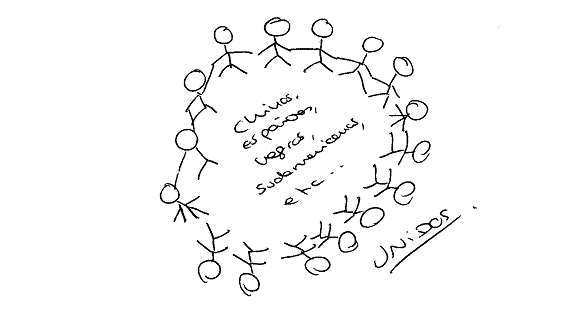 Chinos,
españoles,
negros,
sudamericanos,
etc...
UNIDOS.